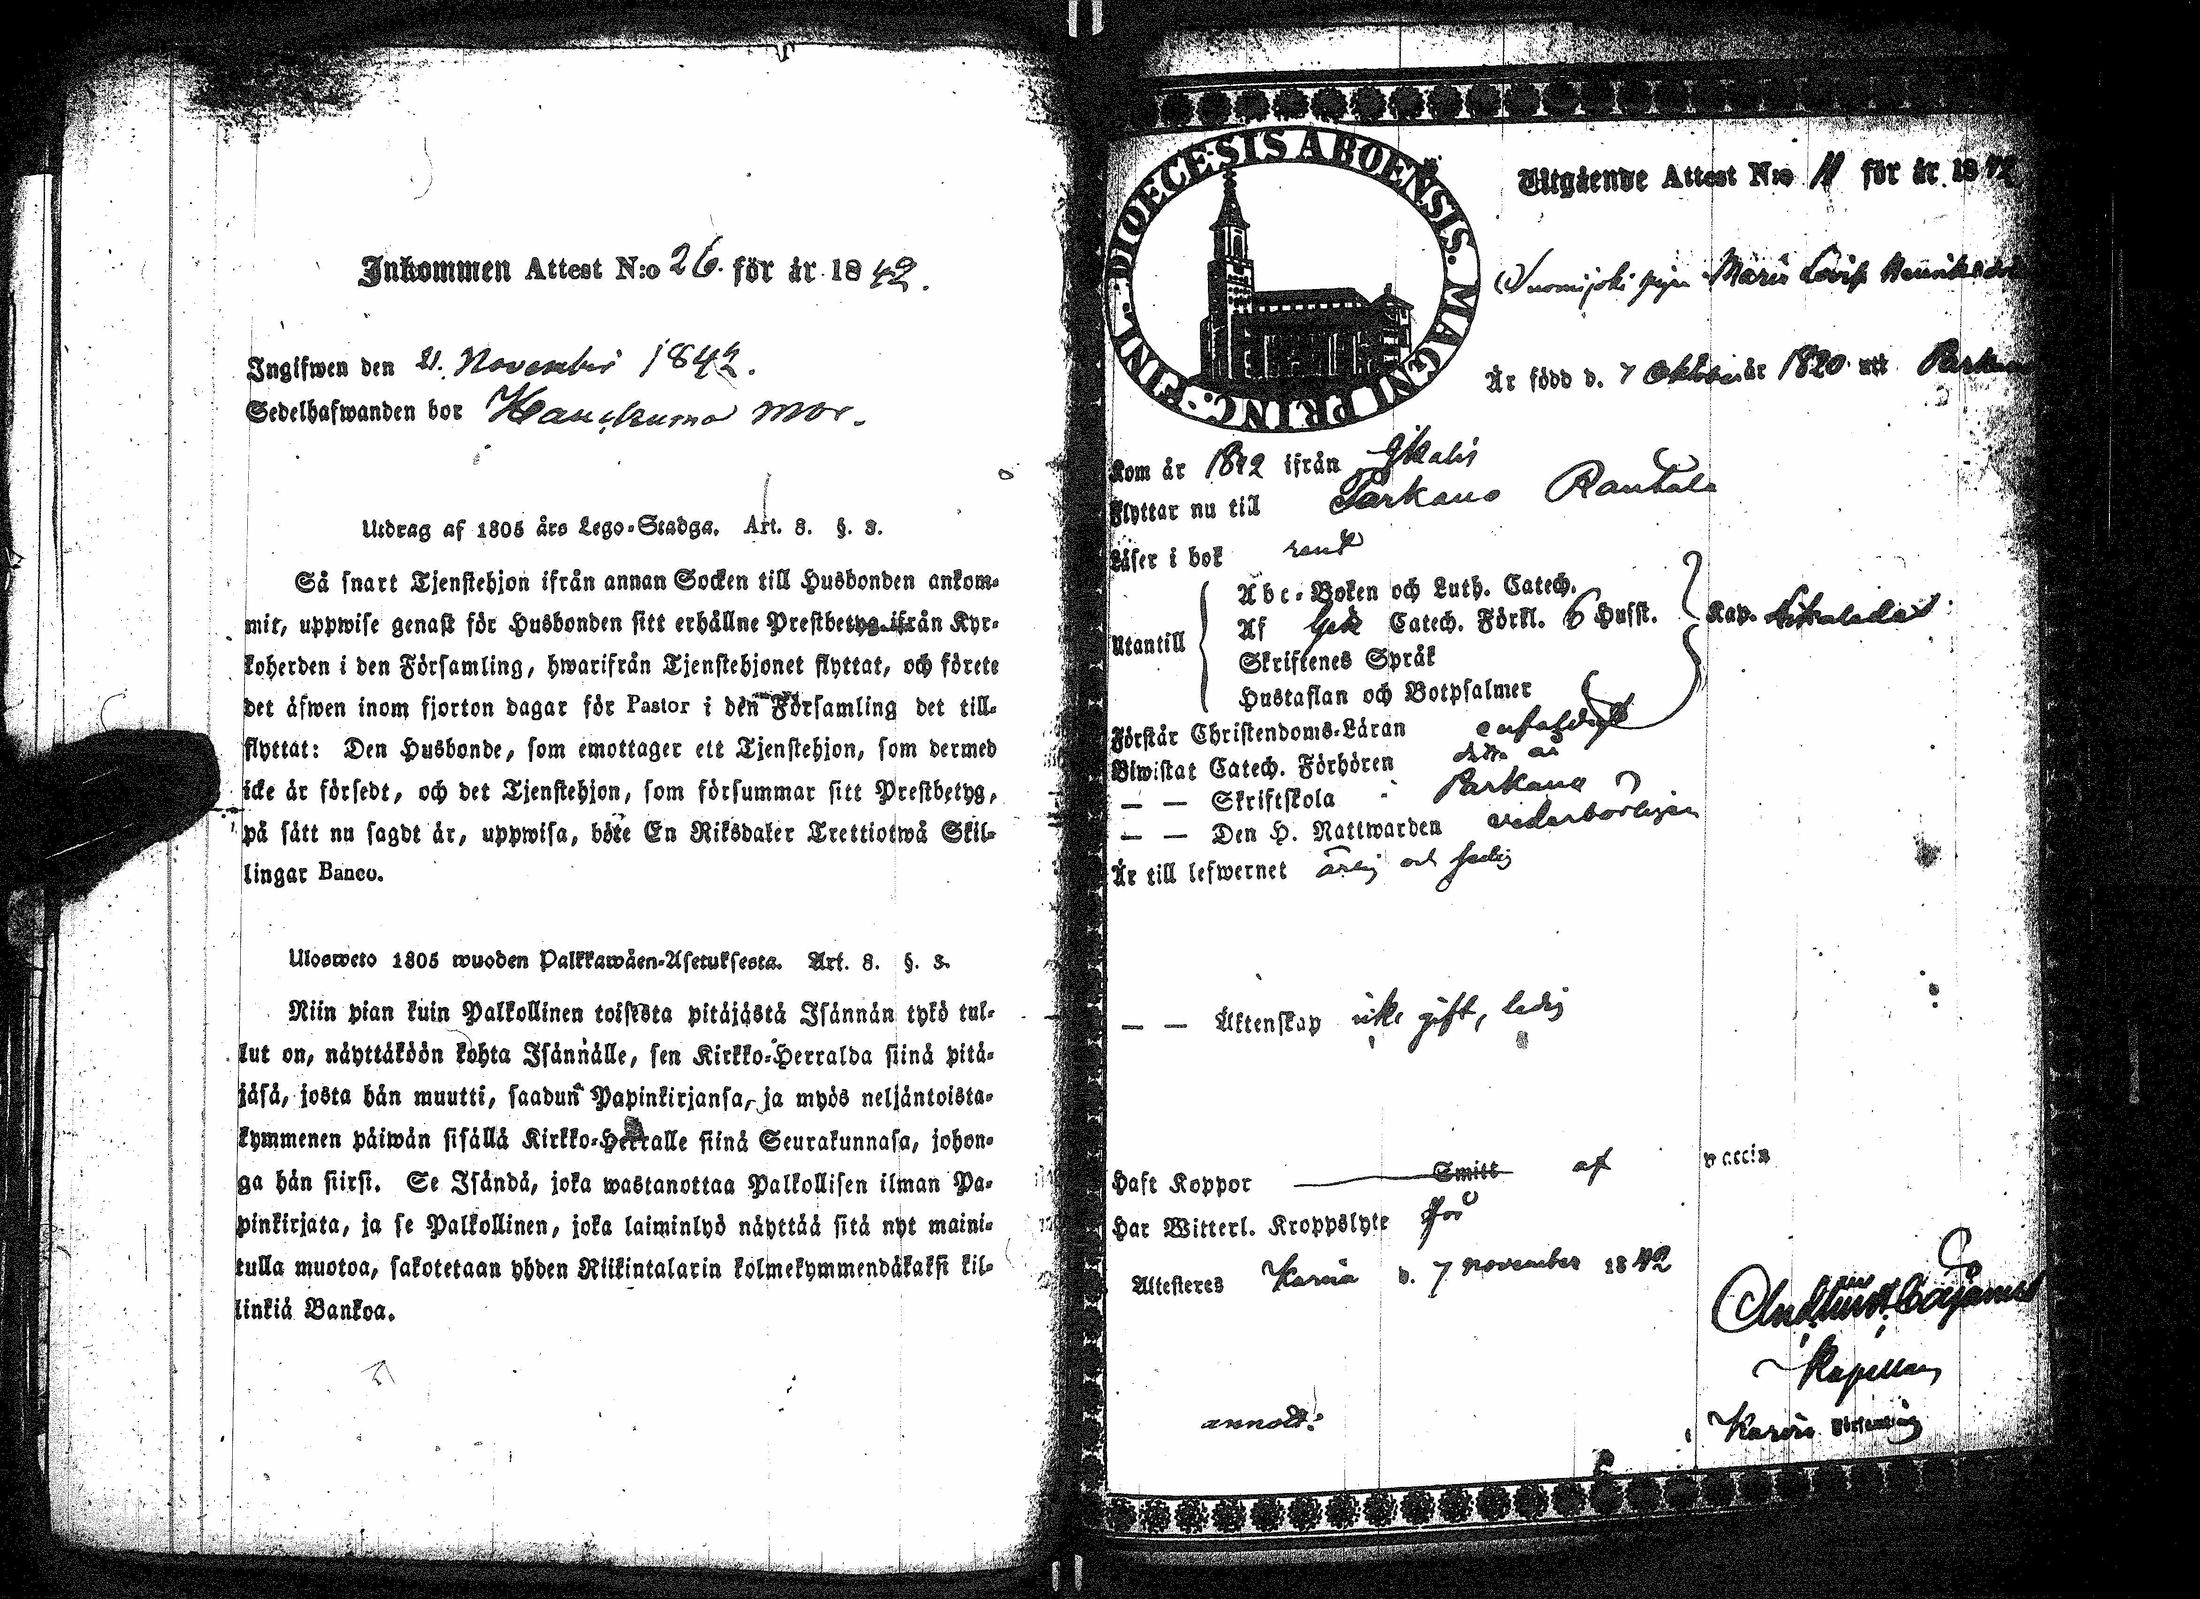 Inkommen Attest N:o 26. för år 1842.
Ingifwen den 21. November 1842.
Sedelhafwanden bor
Utdrag af 1805 års Lego-Stadga. Art. 8. §. 3.
Så snart Tjenstehjon ifrån annan Socken till Husbonden ankom-
mit, uppwise genast för Husbonden sitt erhållne Prestbetyg ifrån Kyr-
koherden i den Församling, hwarifrån Tjenstehjonet flyttat, och förete
det äfwen inom fjorton dagar för Pastor i den Församling det till-
flyttat: Den Husbonde, som emottager ett Tjenstehjon, som dermed
icke är försedt, och det Tjenstehjon, som försummar sitt Prestbetyg,
på sätt nu sagdt är, uppwisa, böte En Riksdaler Trettiotwå Skil-
lingar Banco.
Ulosweto 1805 wuoden Palkkawäen-Asetuksesta. Art. 8. §. 3.
Niin pian kuin Palkollinen toisesta pitäjästä Isännän tykö tul-
lut on, näyttäköön kohta Isännälle, sen Kirkko-Herralda siinä pitä-
jäsä, josta hän muutti, saadun Papinkirjansa, ja myös neljäntoista-
kymmenen päiwän sisällä Kirkko-Herralle siinä Seurakunnasa, johon-
ga hän siirsi. Se Isändä, joka wastanottaa Palkollisen ilman Pa-
pinkirjata, ja se Palkollinen, joka laiminlyö näyttää sitä nyt maini-
tulla muotoa, sakotetaan yhden Riikintalarin kolmekymmendäkaksi kil-
linkiä Bankoa.
DIOECESIS ABOENSIS. MAGNI PRINC. FINL.
Utgående Attest N:o 11 för år 1842
Vuomijoki pigan Maria Lovisa Henriksd
Är född d. 7 Oktober år 1820 uti Parkano
Kom år 1842 ifrån Ikalis
Flyttar nu till Parkano Rantala
Läser i bok rent
Utantill
Abc-Boken och Luth. Catech.
Af Catech. Förkl. 6 Husst. Kap.
Skriftenes Språk
Hustaflan och Botpsalmer
Förstår Christendoms-Läran enfaldigt
Biwistat Catech. Förhören detta år
— — Skriftskola Parkano
— — Den H. Nattwarden vederbörligen
Är till lefwernet ärlig och sedig
— — Äktenskap icke gift, ledig
Haft Koppor Smitt af vaccin
Har Witterl. Kroppslyte
Attesteres Karvia d. 7 november 1842
Kapellan
Karvia Församling
annot: